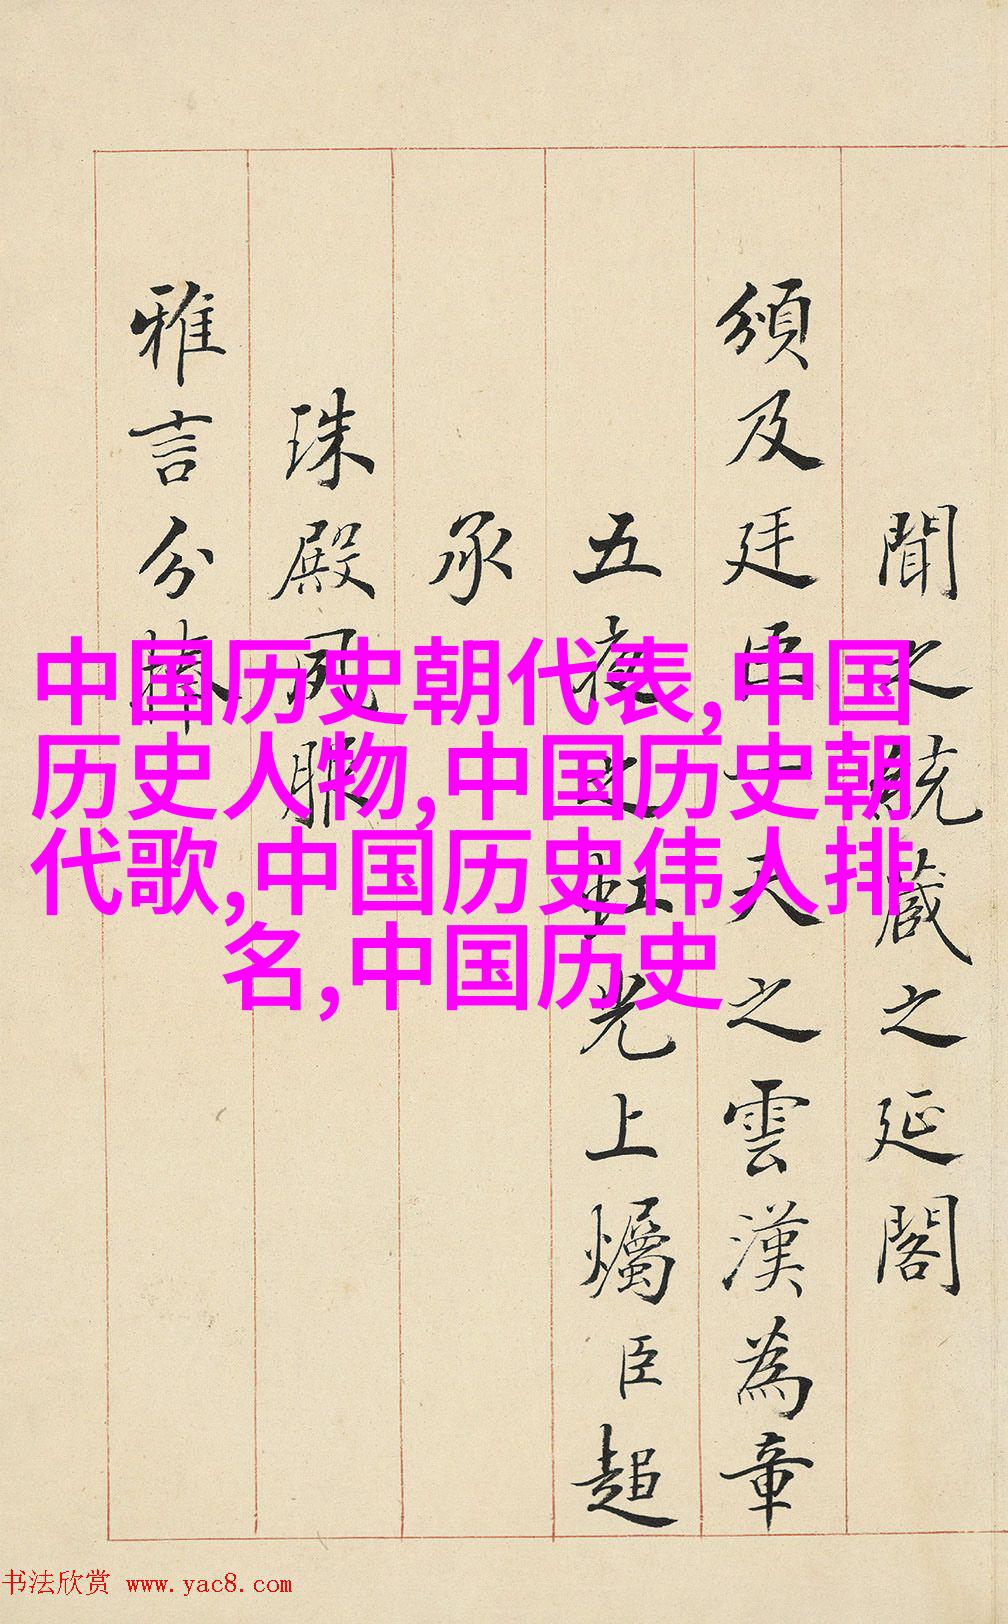 聞之綂蔵之延閣
頒及廷臣一天之雲漢為章
五夜之虹光上爥臣超
承
珠殿夙
雅言分
中国历史朝代表,中国
历史人物,中国历史朝
代歌,中国历史伟人排
名,中国历史
书法欣赏 www.yac8.com